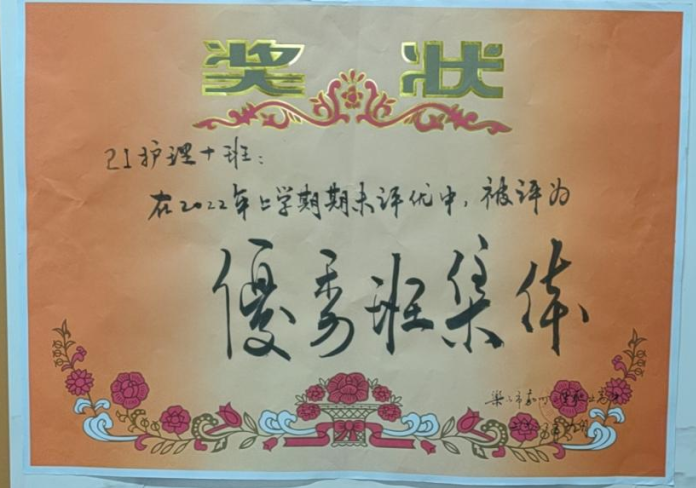 奖状
21护理十班：
在2022年上学期期末评优中，被评为
優秀班集体